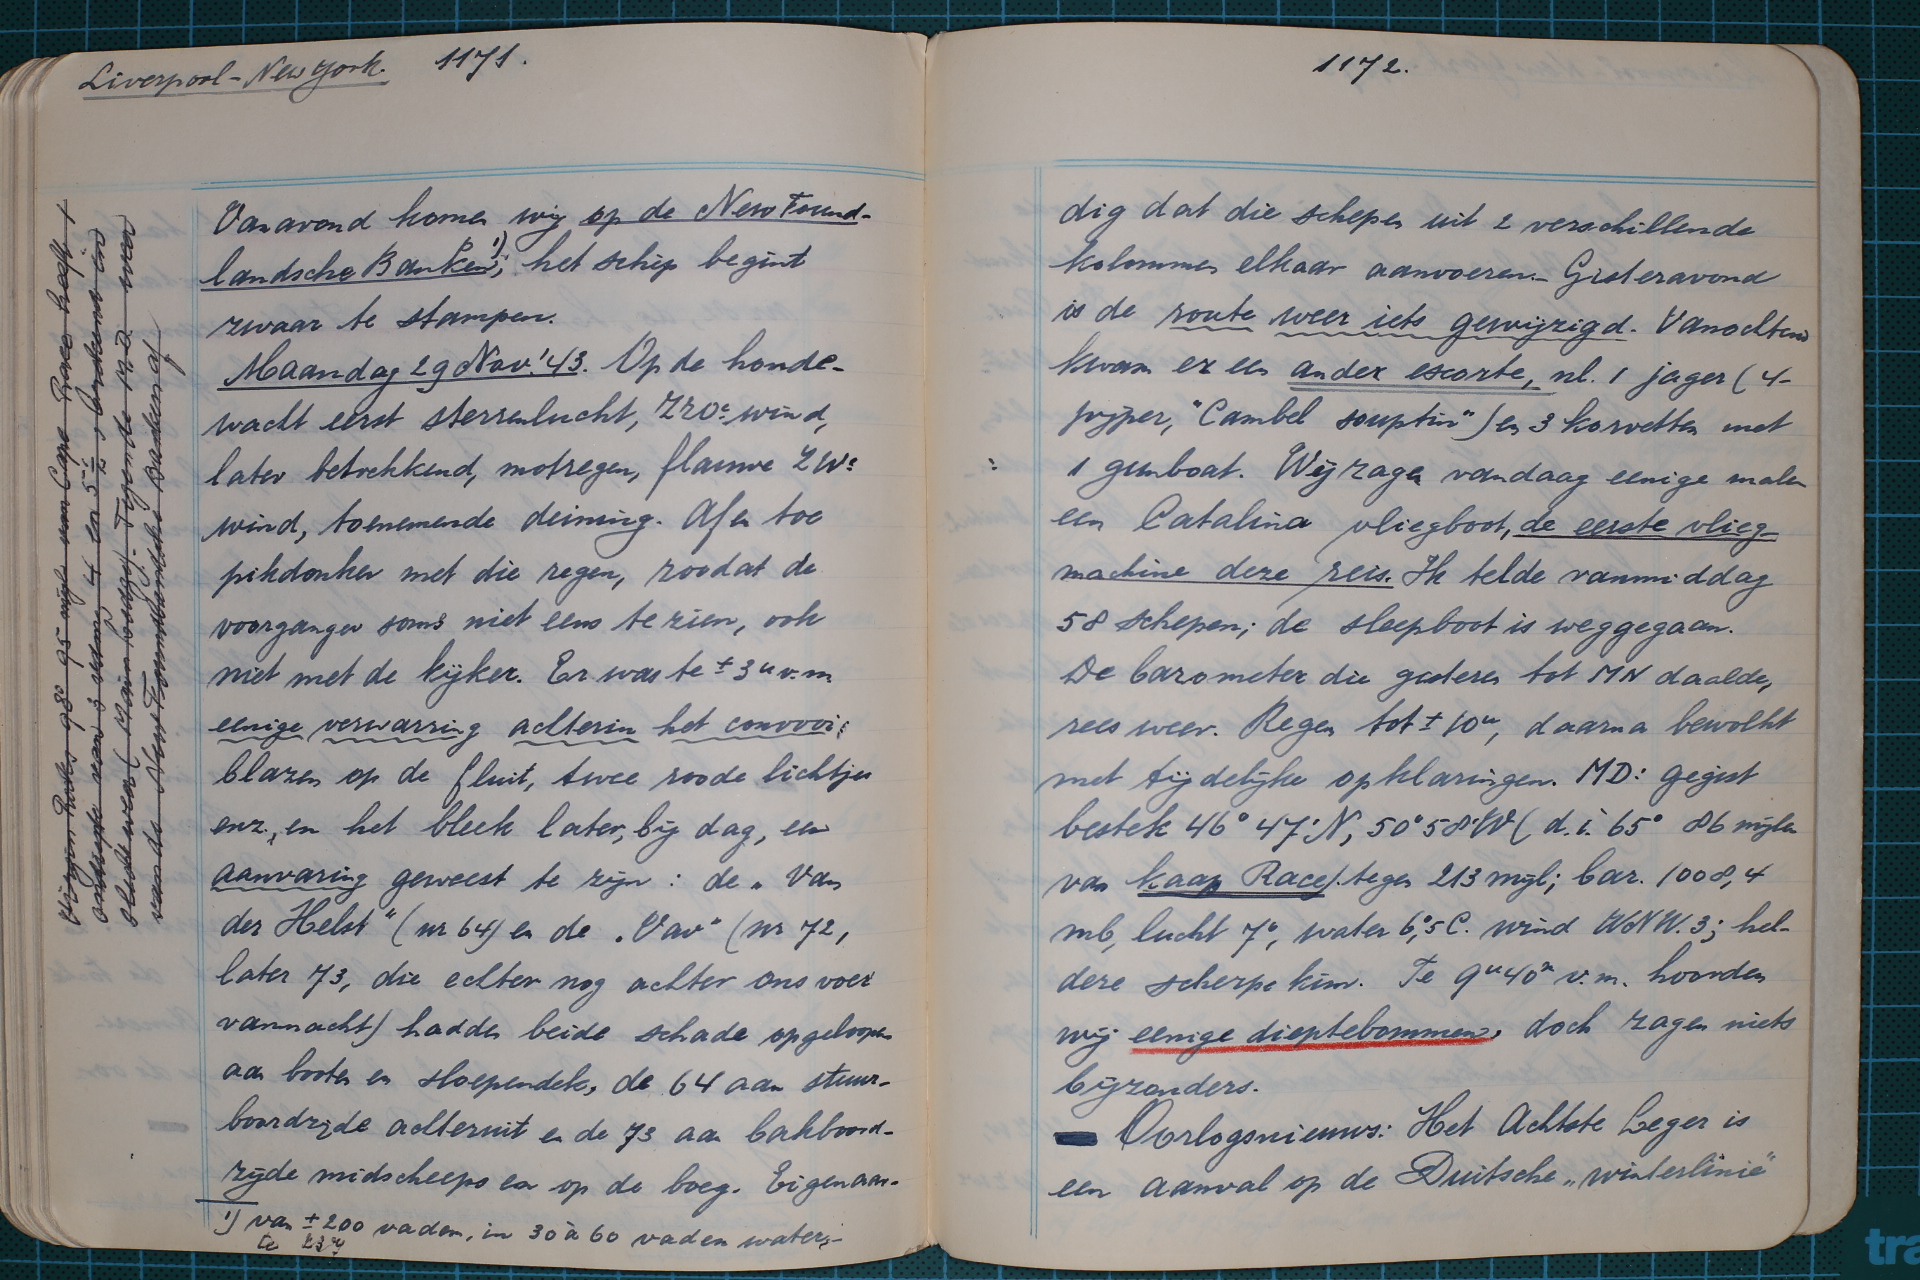 Liverpool-New York. 1171.
Vanavond komen wij op de New Found-
landsche Banken¹⁾, het schip begint
zwaar te stampen.
Maandag 29 Nov. '43. Op de honde-
wacht eerst sterrenlucht, ZZOe wind,
later betrekkend, motregen, flauwe ZWe
wind, toenemende deining. Af en toe
pikdonker met die regen, zoodat de
voorganger soms niet eens te zien, ook
niet met de kijker. Er was te ± 3u v.m.
eenige verwarring achterin het convooi:
blazen op de fluit, twee roode lichtjes
enz., en het bleek later, bij dag, een
aanvaring geweest te zijn: de „Van
der Helst" (nr 64) en de „Vav" (nr 72,
later 73, die echter nog achter ons voer
vannacht) hadden beide schade opgeloopen
aan booten en sloependek, de 64 aan stuur-
boordzijde achteruit en de 73 aan bakboord-
zijde midscheeps en op de boeg. Eigenaar-
¹⁾ van ± 200 vaden, in 30 à 60 vaden water;-
te 23u
van Cape Race heeft 1
4 en
van de New Foundlandsche Banken af.
1172.
dig dat die schepen uit 2 verschillende
kolommen elkaar aanvoeren.- Gisteravond
is de route weer iets gewijzigd. Vanochtend
kwam er een ander escorte, nl. 1 jager (4-
pijper, "Cambel souptin") en 3 korvetten met
1 gunboat. Wij zagen vandaag eenige malen
een Catalina vliegboot, de eerste vlieg-
machine deze reis. Ik telde vanmiddag
58 schepen; de sleepboot is weggegaan.
De barometer die gisteren tot MN daalde,
rees weer. Regen tot ± 10u, daarna bewolkt
met tijdelijke opklaringen. MD: gegist
bestek 46° 47' N, 50° 58' W (d.i. 65° 86 mijlen
van kaap Race). tegen 213 mijl; bar. 1008,4
mb, lucht 7°, water 6,°5 C. wind WNW. 3; hel-
dere scherpe kim. Te 9u 40m v.m. hoorden
wij eenige dieptebommen, doch zagen niets
bijzonders.
Oorlogsnieuws: Het Achtste Leger is
een aanval op de Duitsche „winterlinie"